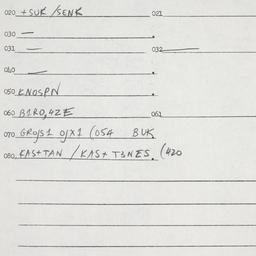 020 + SUK / SENK 021
030 —
031 — 032 —
040 —
050 KNOSPN
060 BIRO,42E 061
070 GROJS1 OJX1 (054 BUK
080. KAS+TAN / KAS+ T3NES. (420